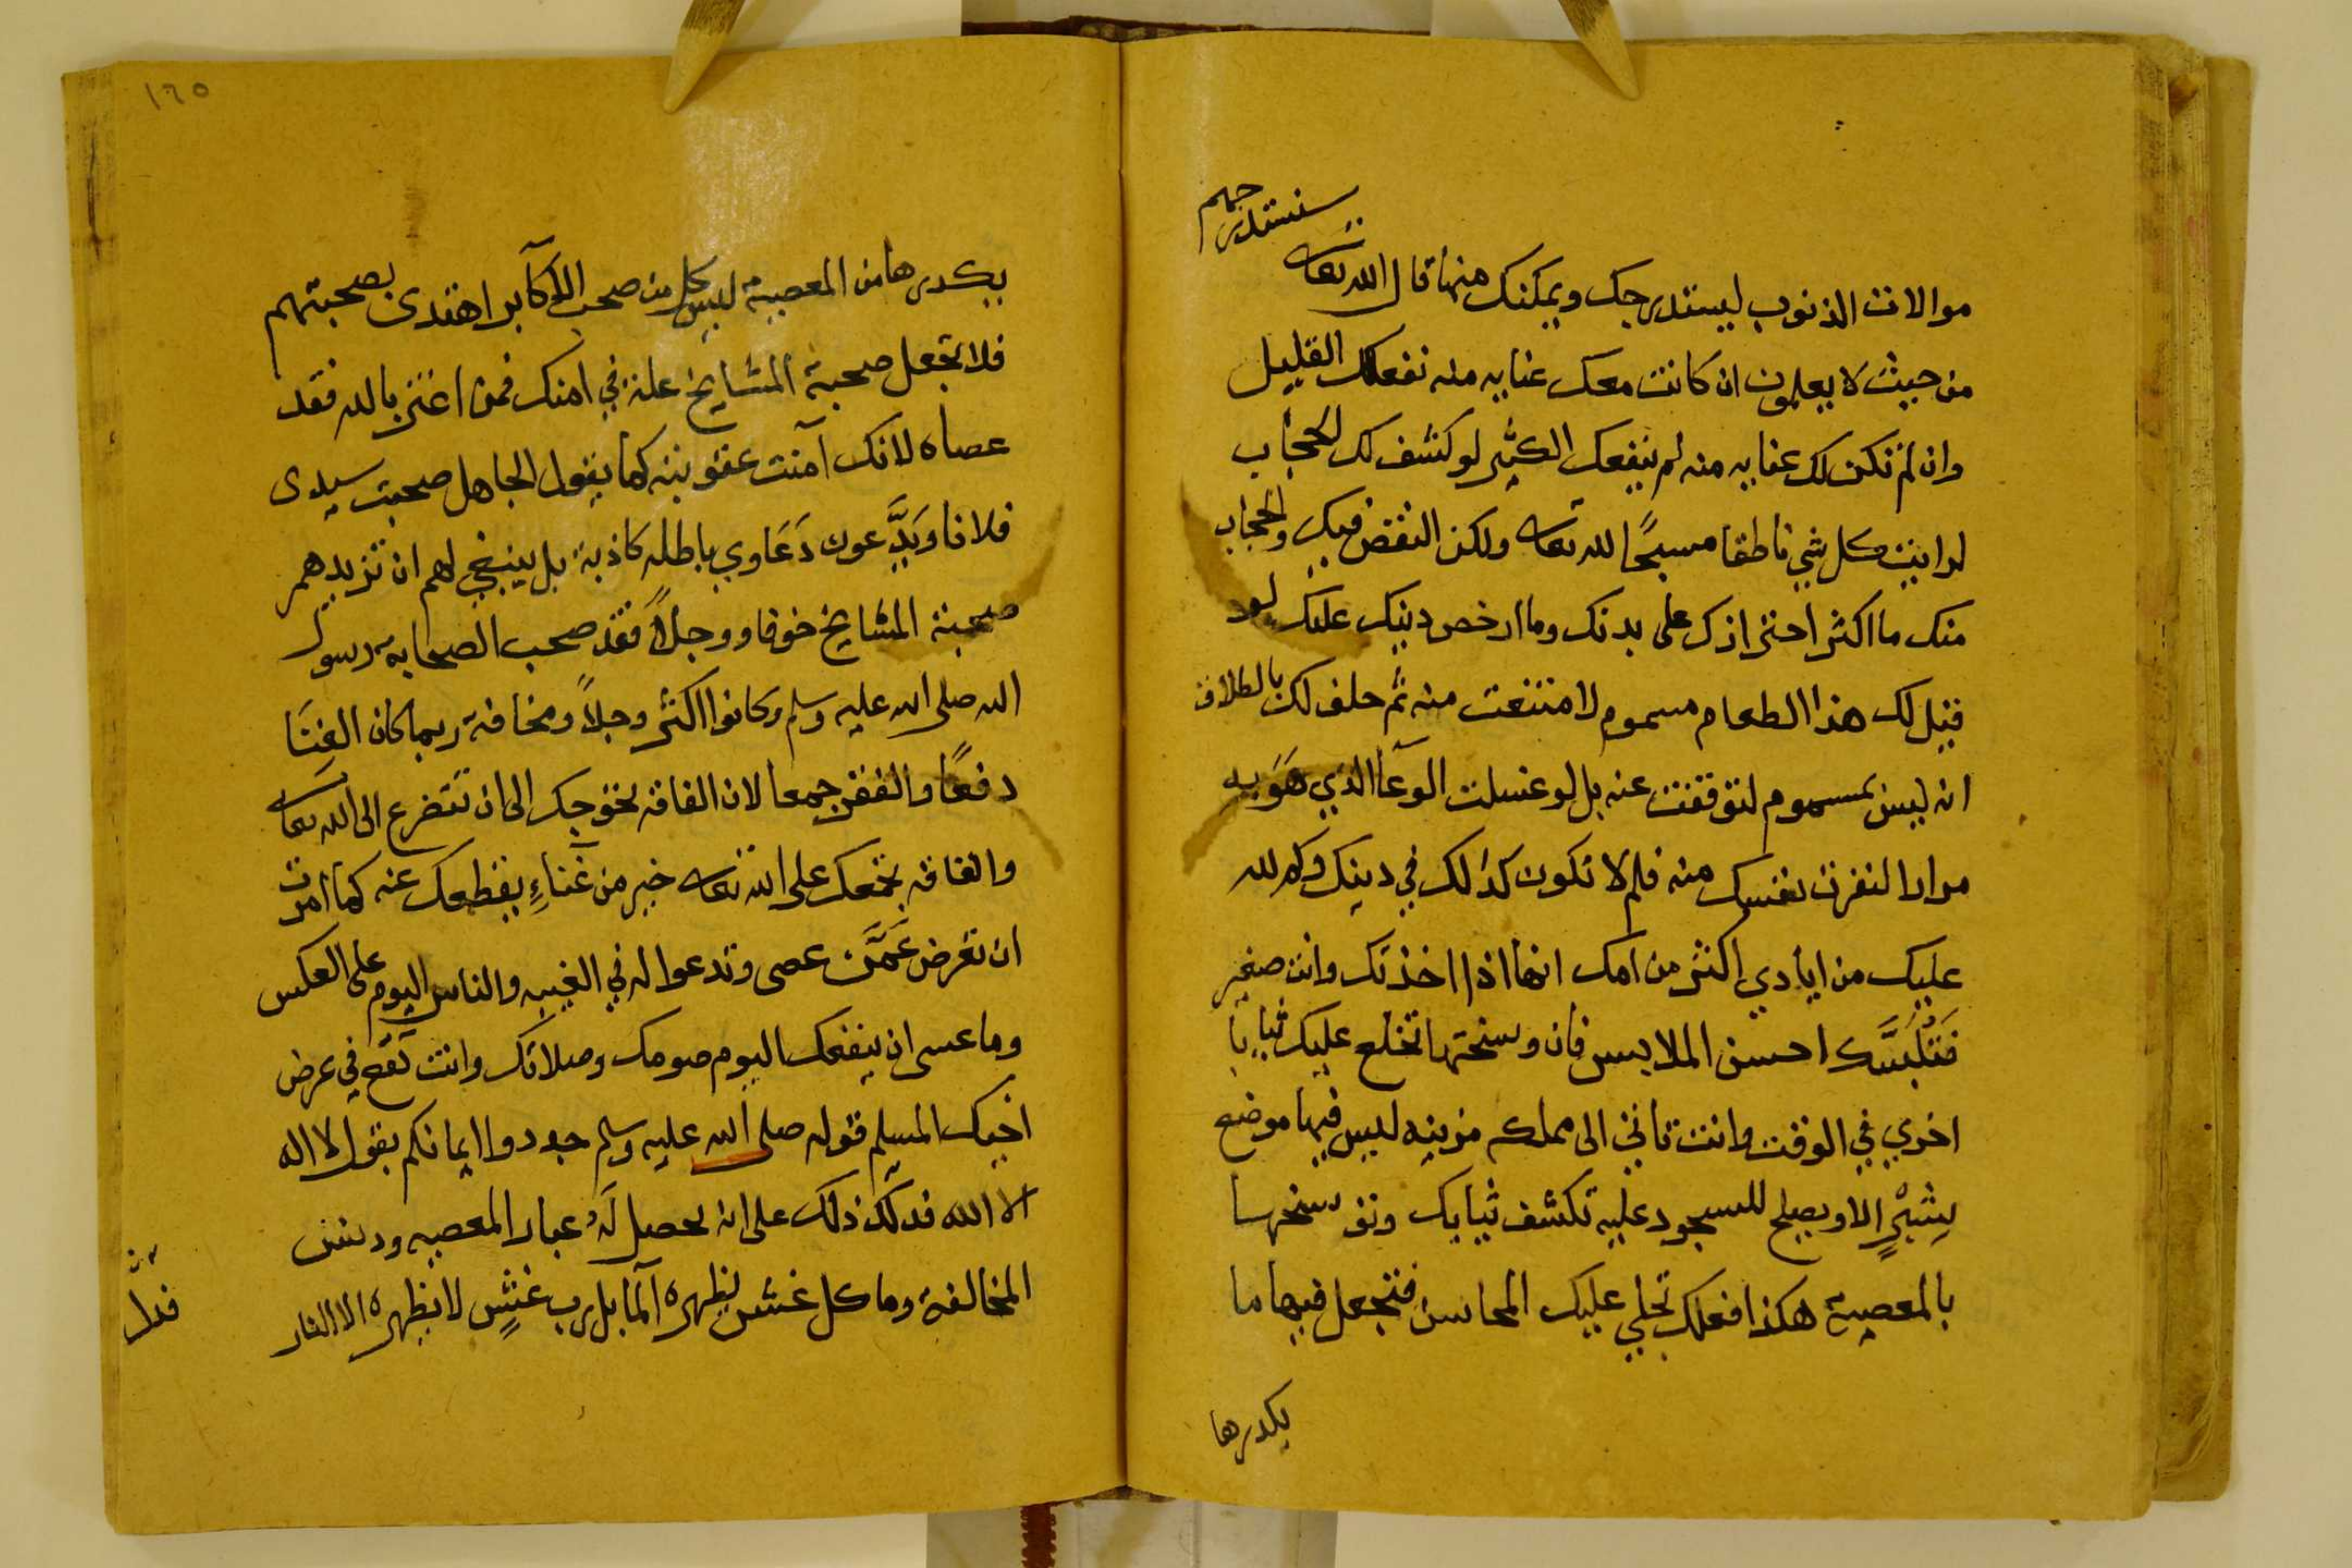 سنستدرجهم
موالات الذنوب ليستدرجك ويمكنك منها قال الله تعالى
من حيث لا يعلمون ان كانت معك عنايه منه نفعك القليل
وان لم تكن لك عنايه منه لم ينفعك الكثير لو كشف لك الحجاب
لرايت كل شي ناطقا مسبحًا لله تعالى ولكن النقص فيك والحجاب
منك ما اكثر احترازك على بدنك وما ارخص دينك عليك لو
قيل لك هذا الطعام مسموم لامتنعت منه ثم حلف لك بالطلاق
انه ليس بمسموم لتوقفت عنه بل لو غسلت الوعآ الذي هَوَ به
مرارا لنفرت نفسك منه فلم لا تكون كذلك في دينك وكم لله
عليك من ايادي اكثر من امك انها اذا اخذتك وانت صغير
فَتُلْبِسَك احسن الملابس فان وسختها تخلع عليك ثيابا
اخري في الوقت وانت تاتي الى مملكه مزينه ليس فيها موضع
شِبْرٍ الا ويصلح للسجود عليه تكشف ثيابك وتوسخها
بالمعصية هكذا فعلك تجلي عليك المحاسن فتجعل فيها ما
يكدرها
١٦٥
يكدرها من المعصية ليس كل من صحب الاكآبر اهتدى بصحبتهم
فلا تجعل صحبة المشايخ علة في امنك فمن اغتر بالله فقد
عصاه لانك آمنت عقوبته كما يقول الجاهل صحبت سيدى
فلانا ويَدَّعون دَعَاوي باطله كاذبة بل ينبغي لهم ان تزيدهم
صحبة المشايخ خوفا ووجلاً فقد صحب الصحابة رسول
الله صلى الله عليه وسلم وكانوا اكثر وجلاً ومخافة ربما كان الغِنَا
دفعًا والفقر جمعا لان الفاقه تحوجك الى ان تتضرع الى الله تعالى
والفاقه تجمعك على الله تعالى خير من غَناءٍ يقطعك عنه كما امرت
ان تعرض عَمَّن عصى وتدعوا له في الغيبه والناس اليوم على العكس
وما عسى ان ينفعك اليوم صومك وصلاتك وانت تقع في عرض
اخيك المسلم قوله صلى الله عليه وسلم جددوا ايمانكم بقول لا اله
الا الله فدلَّ ذلك على انه يحصل لَهُ غبار المعصيه ودنس
المخالفة وما كل غش يظهره المآ بل رب غشٍ لا يظهره الا النار